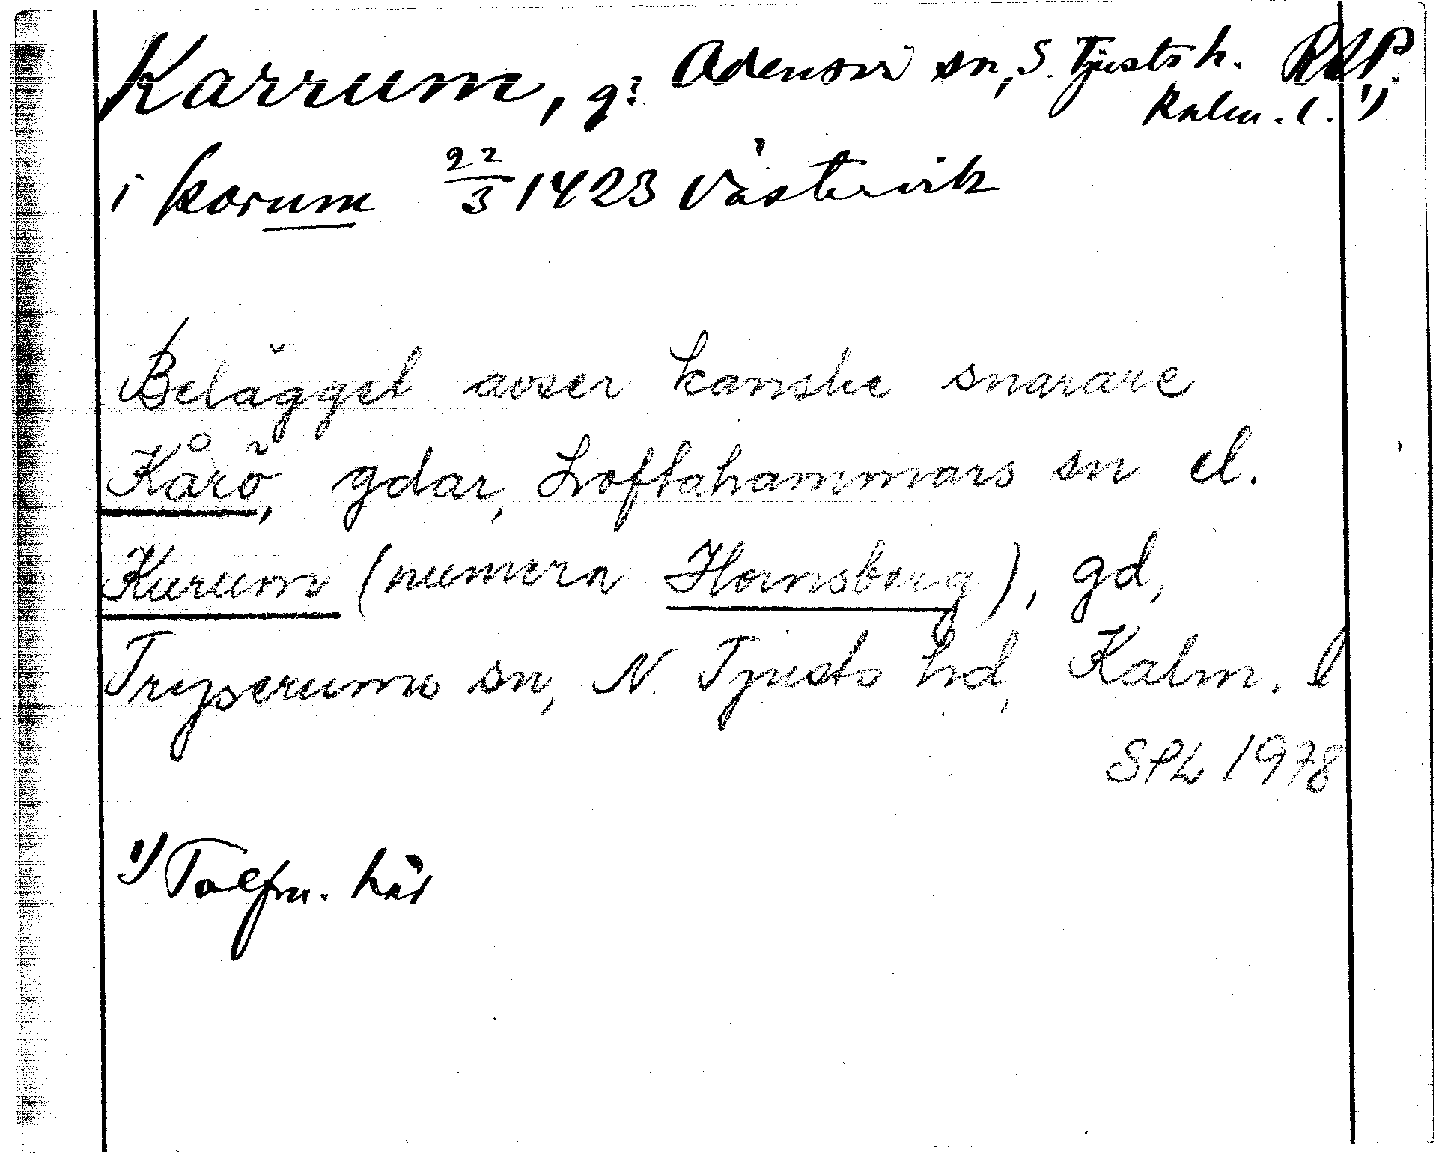 Karrum, g? Odensvi sn, S. Tjusts h. RAP.
Kalm. l. 1)
i korum 22/3 1423 Västervik
Belägget avser kanske snarare
Kårö, gdar, Loftahammars sn el.
Kurum (numera Hornsberg), gd,
Tryserums sn, N. Tjusts hd, Kalm. l
SPL 1978
1) här